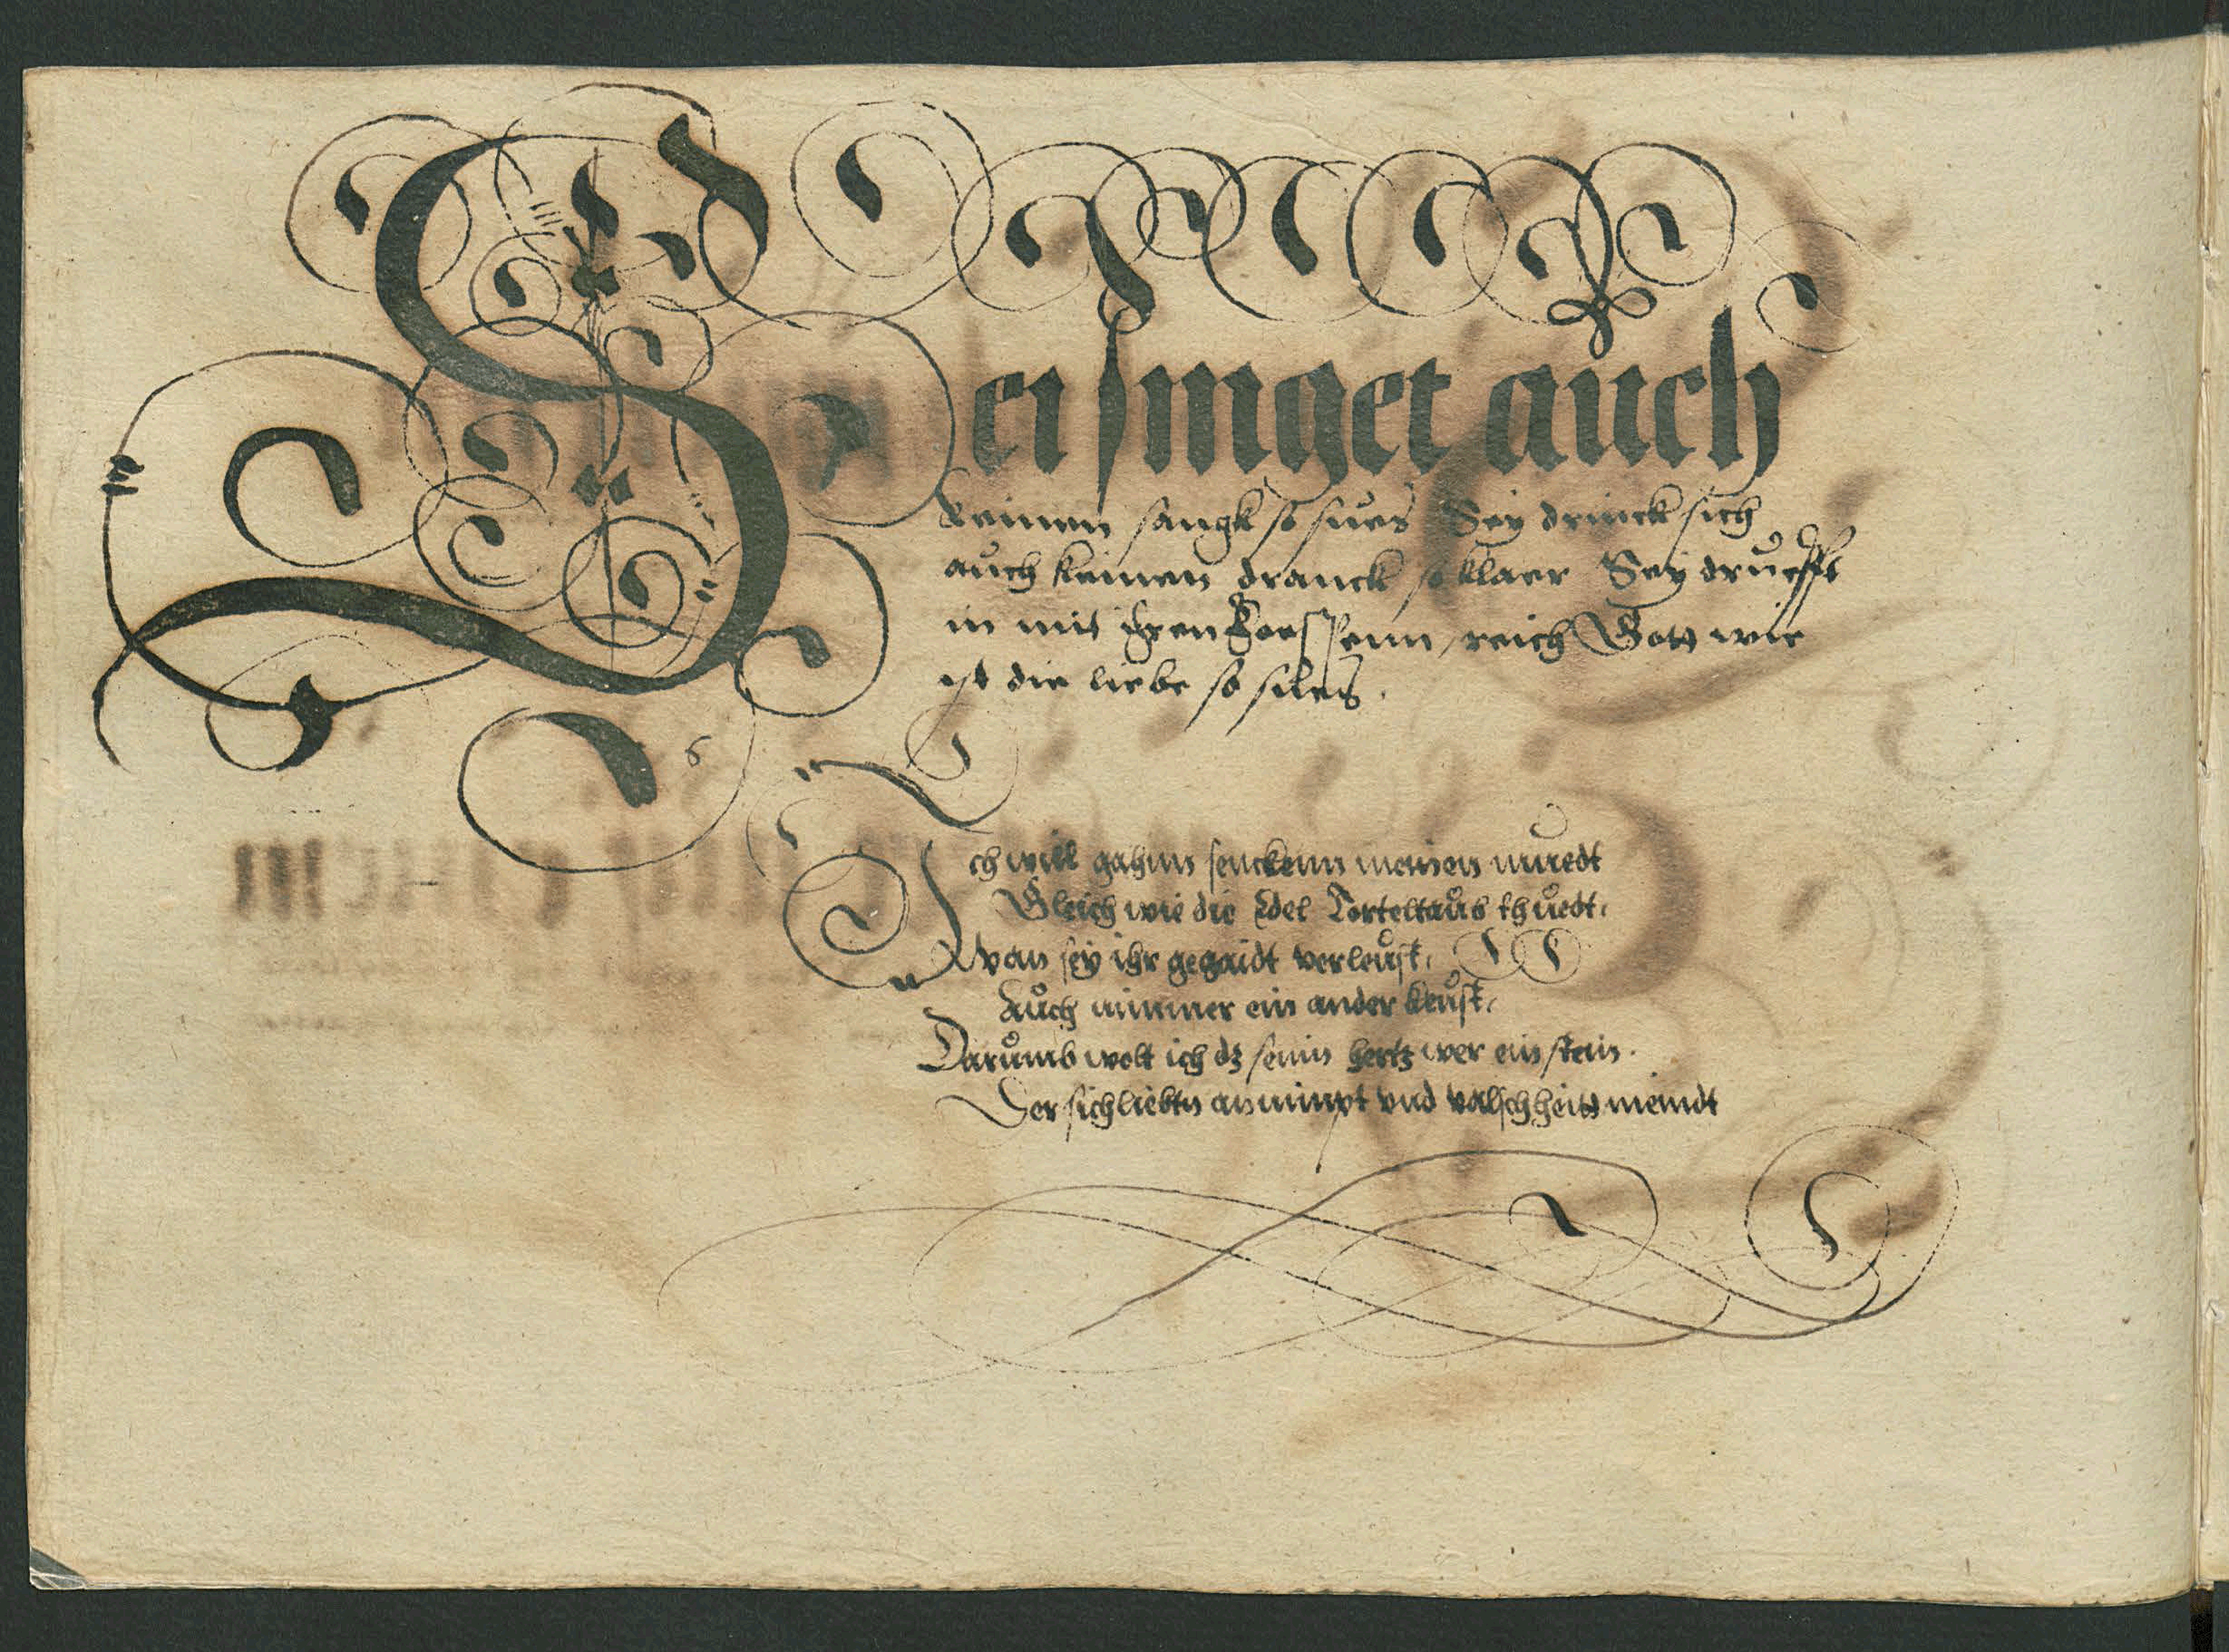 Sei singet auch
keinen sangk so sues Sey drinck sich
auch keinen dranck so klaer Sey drufft
in mit iren voessenn, reich Gott wie
ist die liebe so sues.
6
Ich will gahnn senckenn meinen muedt
Gleich wie die Edel Torteltaub thuedt,
Wan sey ihr gegaidt verleust,
Auch nimmer ein ander keust,
Darumb wolt ich dz sein hertz wer ein stein.
Der sich liebtn annimpt vnd valschheitt meindt